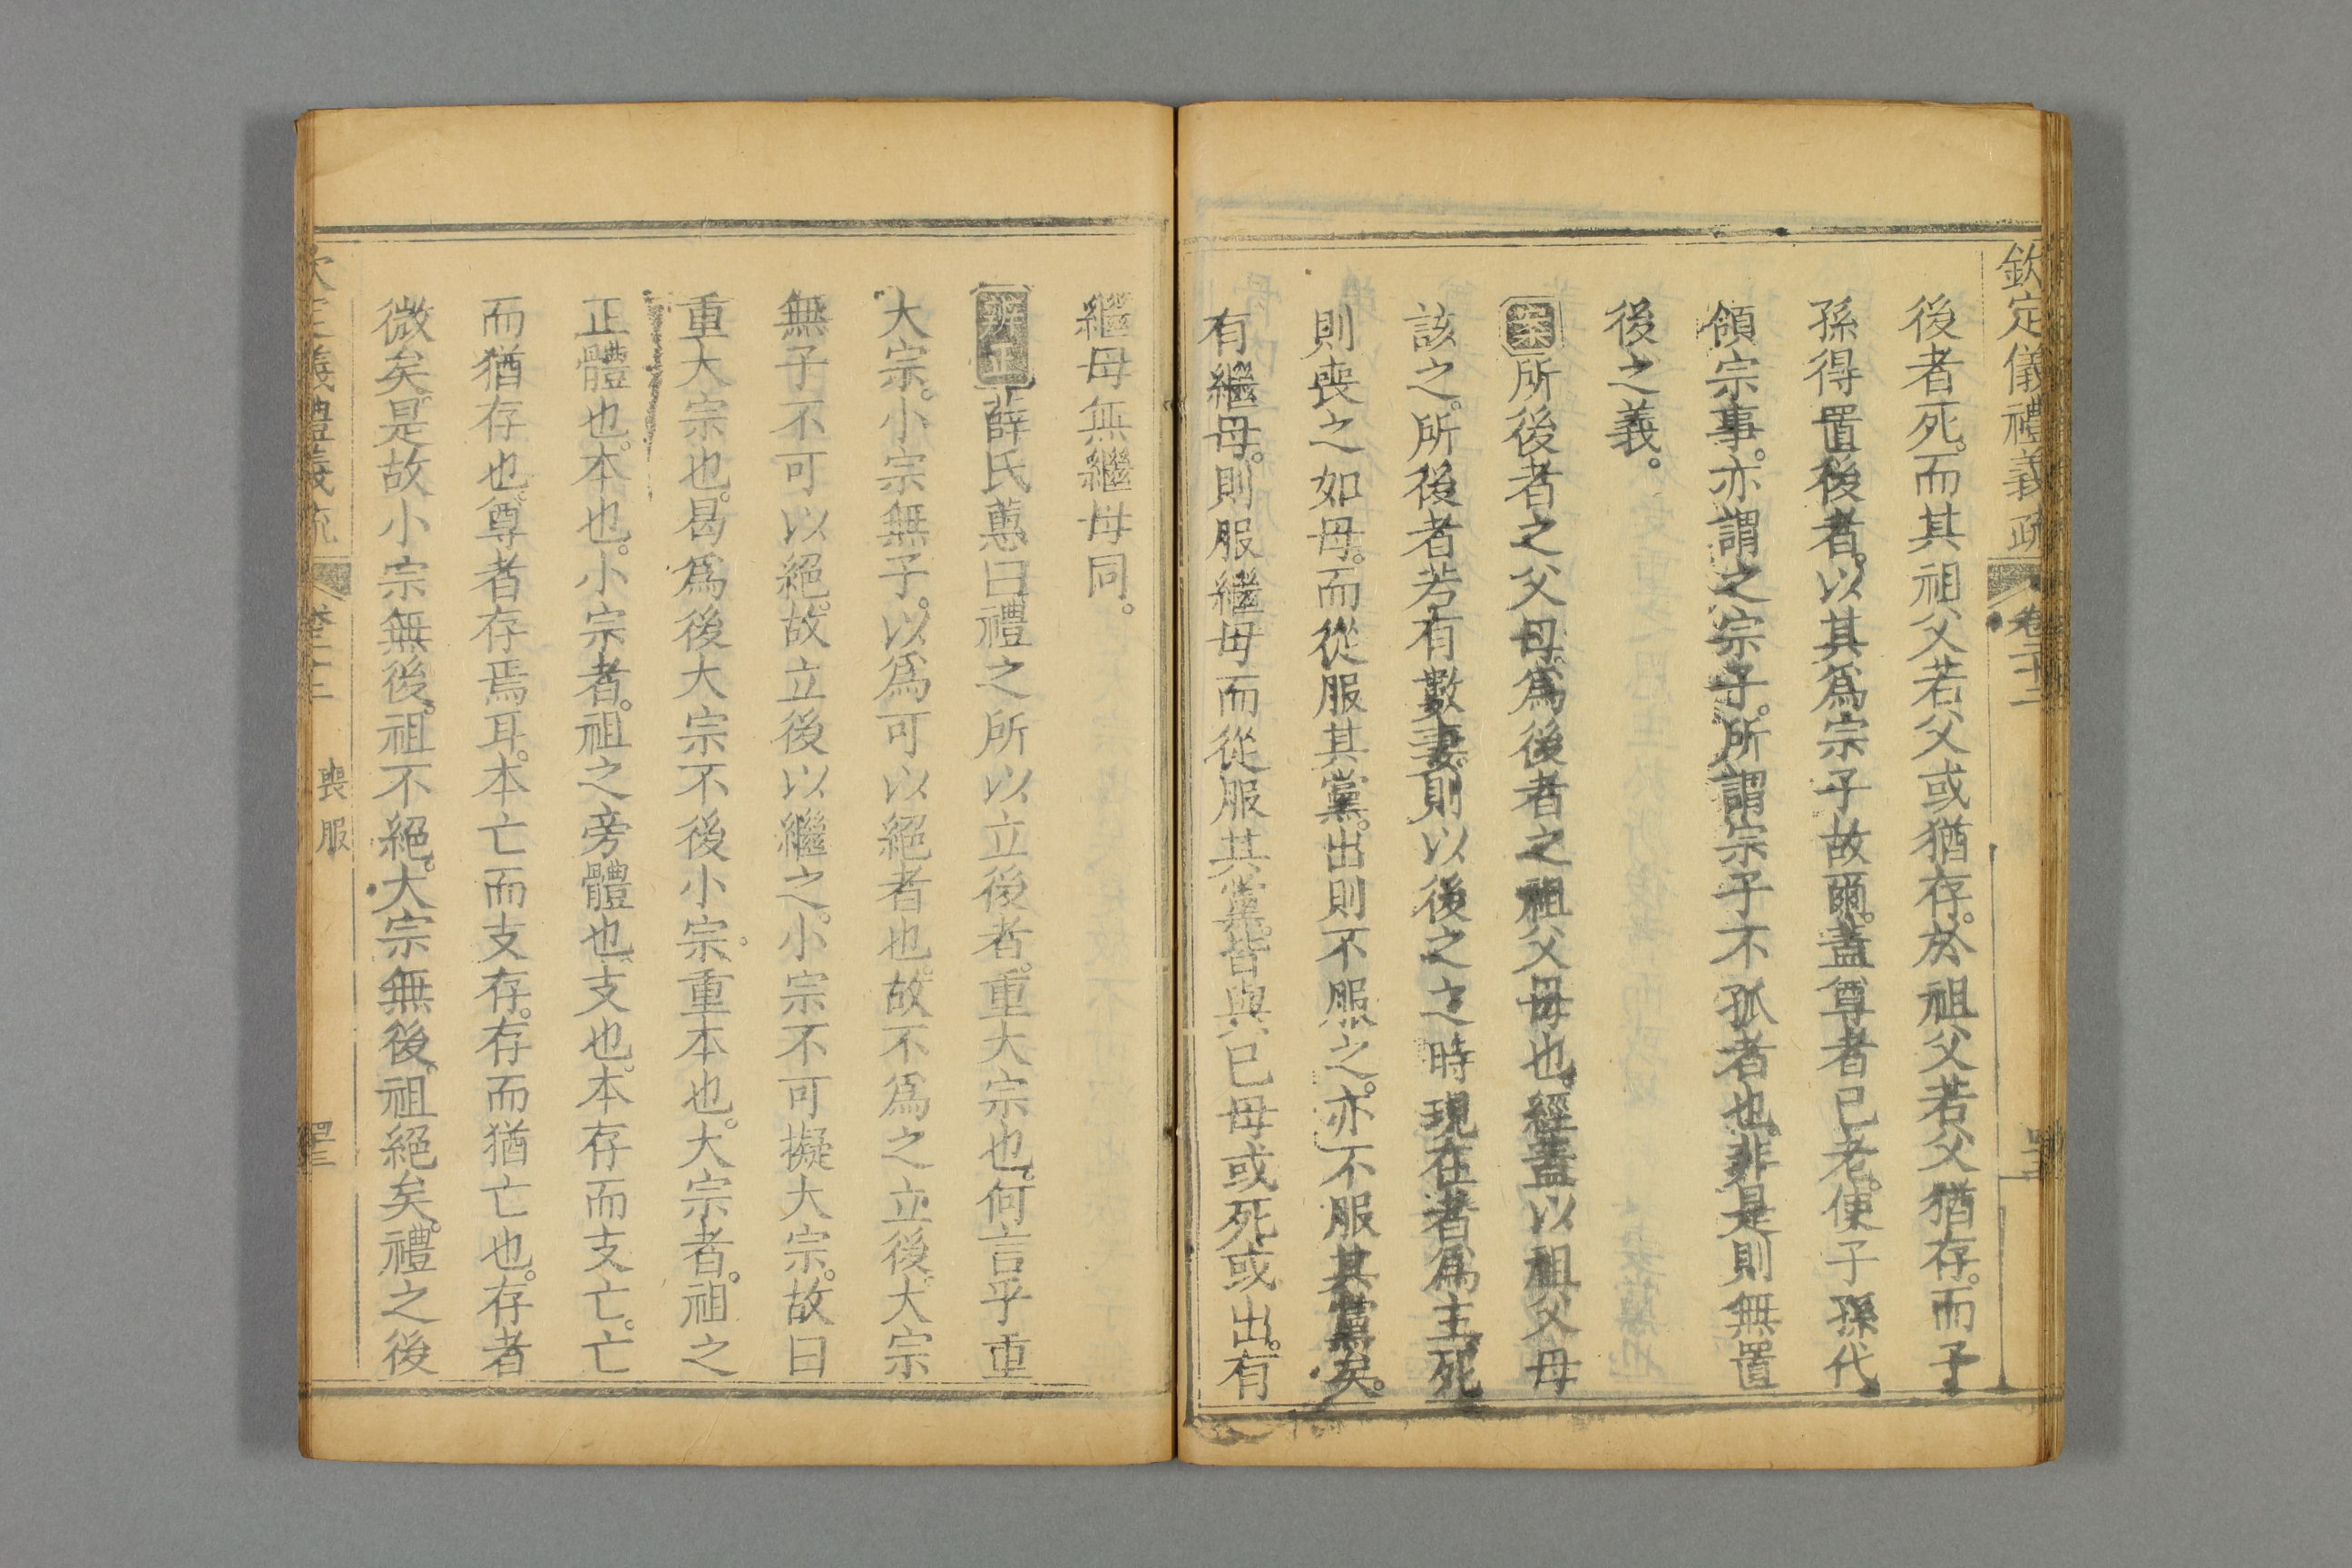 欽定儀禮義疏 卷二十二
後者死。而其祖父若父或猶存。於祖父若父猶存。而子
孫得置後者。以其爲宗子故爾。蓋尊者已老。使子孫代
領宗事。亦謂之宗子。所謂宗子不孤者也。非是則無置
後之義。
案所後者之父母。爲後者之祖父母也。經蓋以祖父母
該之。所後者若有數妻。則以後之之時現在者爲主。死
則喪之如母。而從服其黨。出則不服之。亦不服其黨矣。
有繼母。則服繼母而從服其黨。皆與已母或死或出。有
繼母無繼母同。
辨正薛氏蕙曰禮之所以立後者。重大宗也。何言乎重
大宗。小宗無子。以爲可以絕者也。故不爲之立後。大宗
無子不可以絕。故立後以繼之。小宗不可擬大宗。故曰
重大宗也。曷爲後大宗不後小宗。重本也。大宗者。祖之
正體也。本也。小宗者。祖之旁體也。支也。本存而支亡。亡
而猶存也。尊者存焉耳。本亡而支存。存而猶亡也。存者
微矣。是故小宗無後。祖不絕。大宗無後。祖絕矣。禮之後
喪服